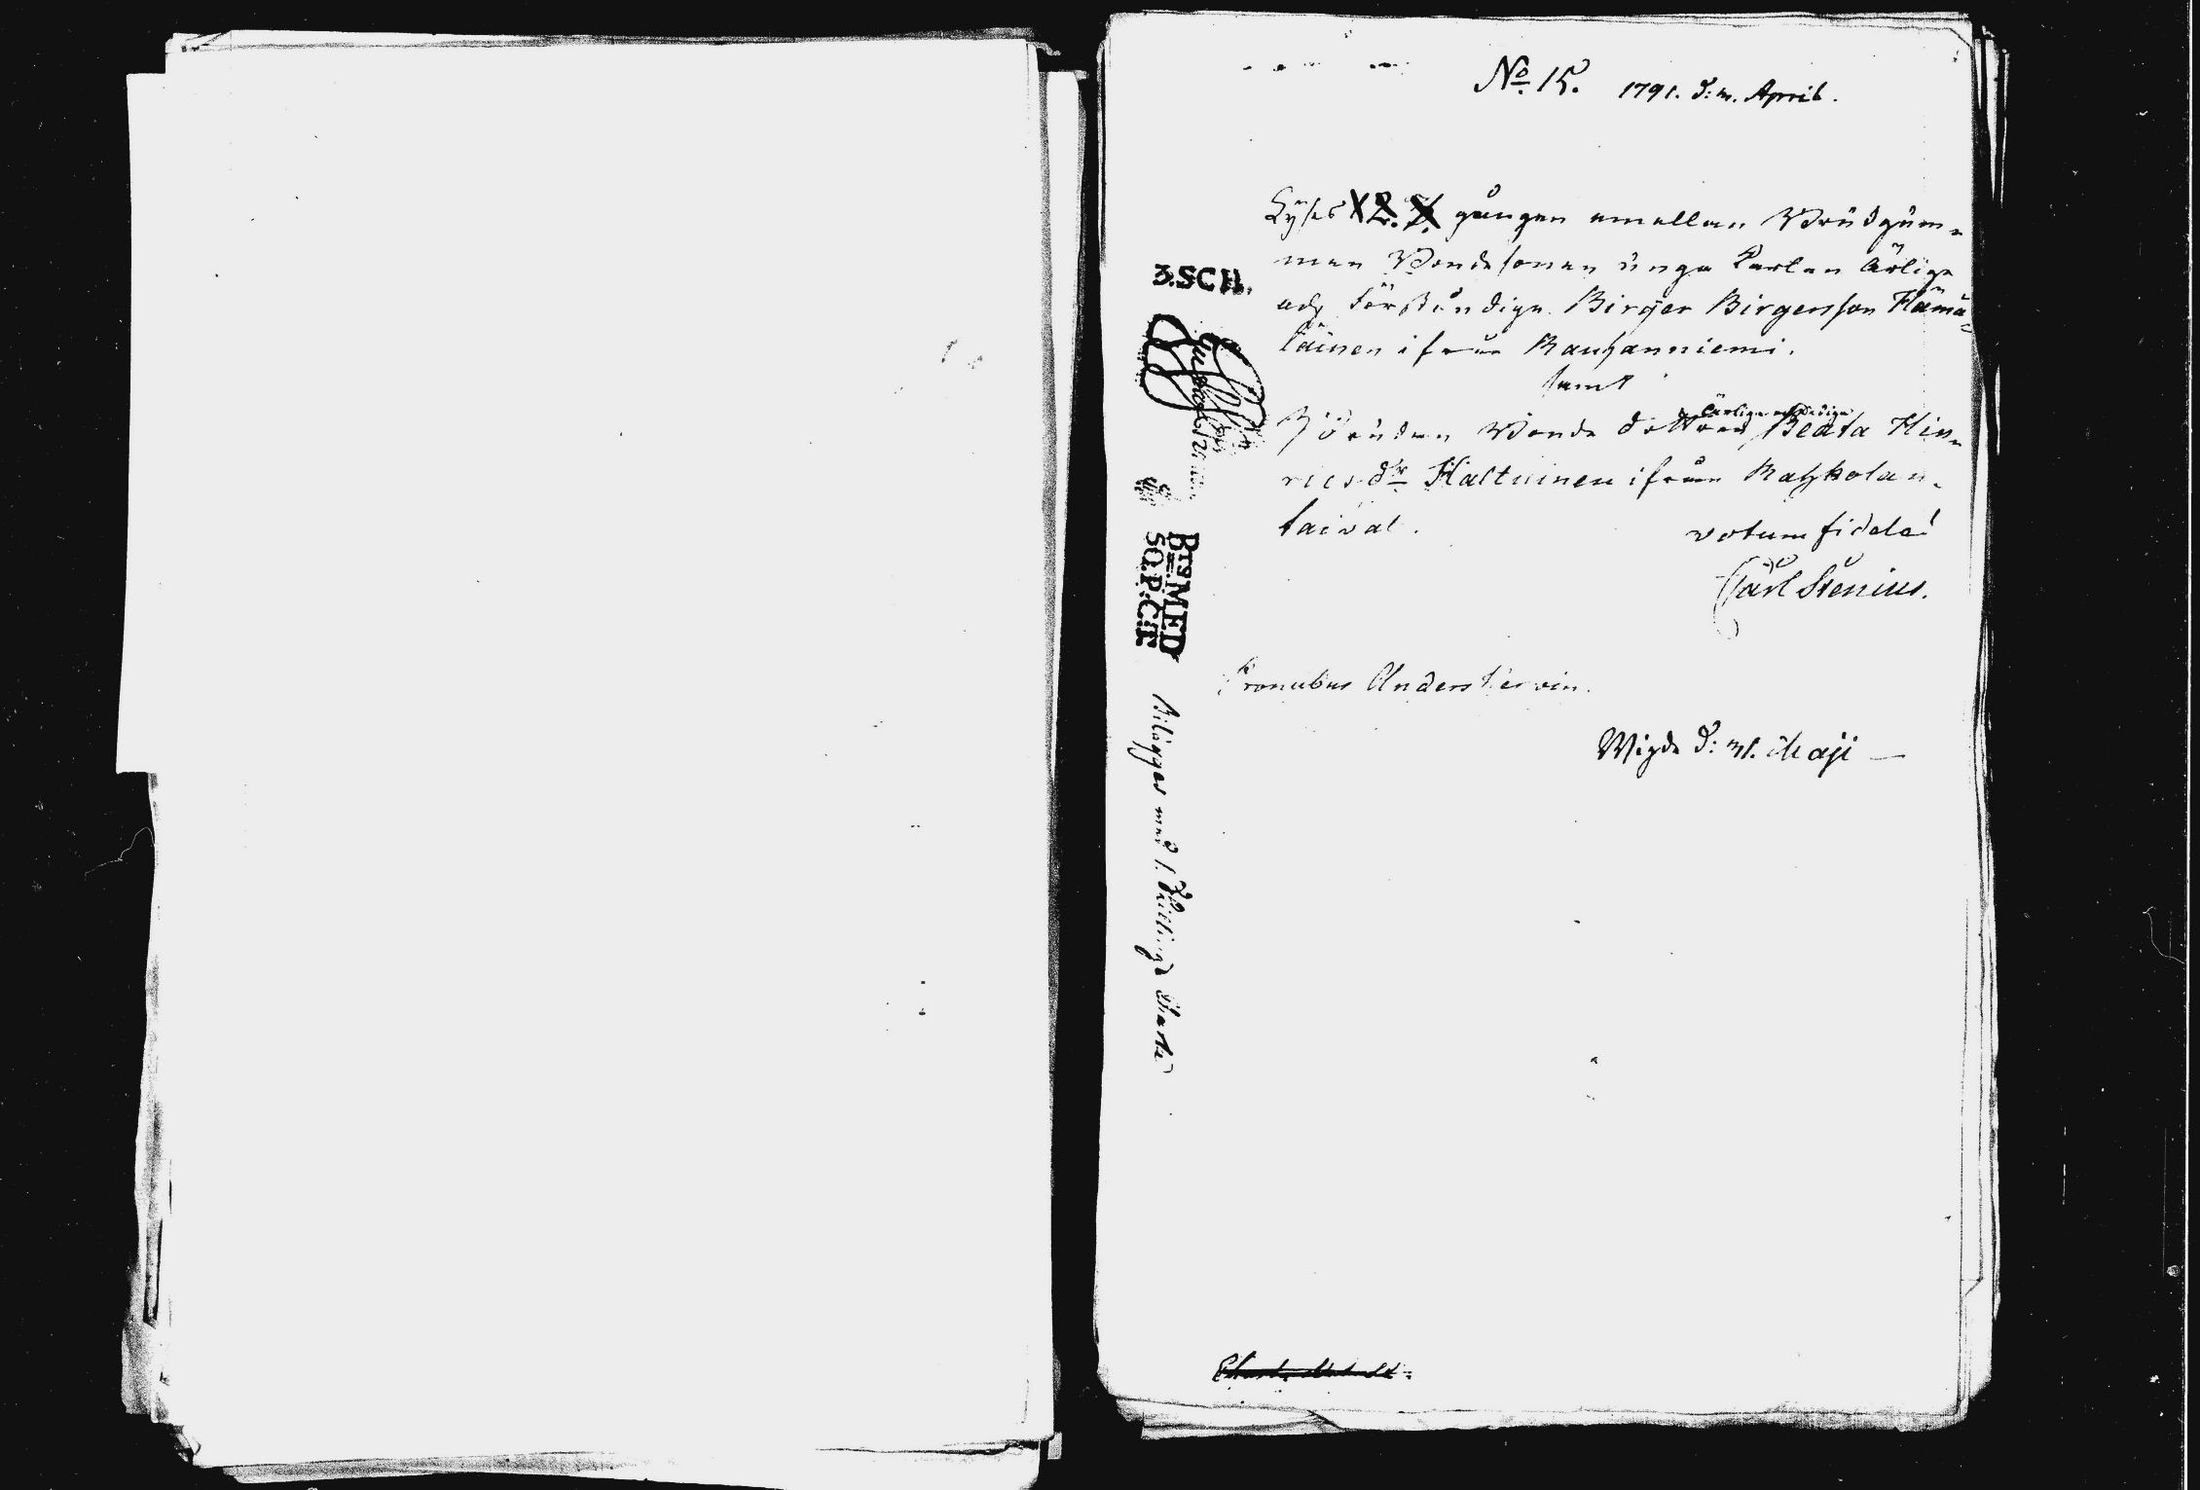 No. 15. 1791. d: 3. April.
Lyses 1. 2. 3. gången emellan Brüdgüm-
men Bondesonen unga Karlen ärlige
och förståndige Birger Birgersson Hämä-
läinen ifrån Rauhanniemi.
samt
Brüden Bonde dottren ärliga och dediga Beata Hin-
rics dr Haltuinen ifrån Ratzkolan-
taival.
votum fidele!
Carl Stenius.
Pronubus Anders
Wigde d: 31. Maji
3. SCH.
BTS MED
50. P. C:T
Belägges med 1. Skillings Charta